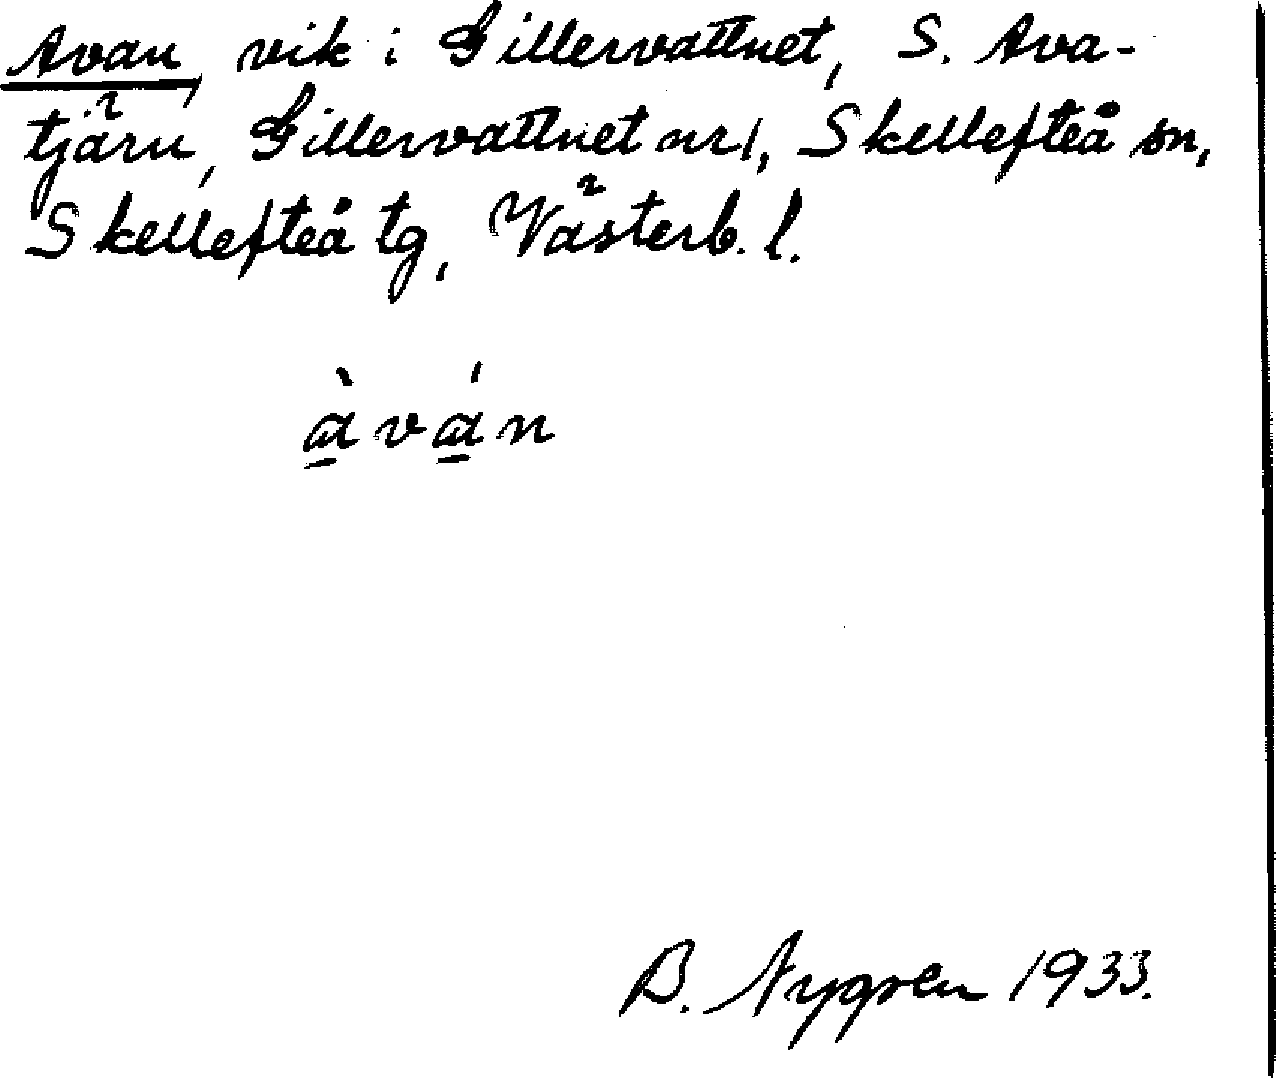 Avan, vik i Gillervattnet, S. Ava-
tjärn, Gillervattnet nr 1, Skellefteå sn,
Skellefteå tg, Västerb. l.
à̲vá̲n
B. Nygren 1933.